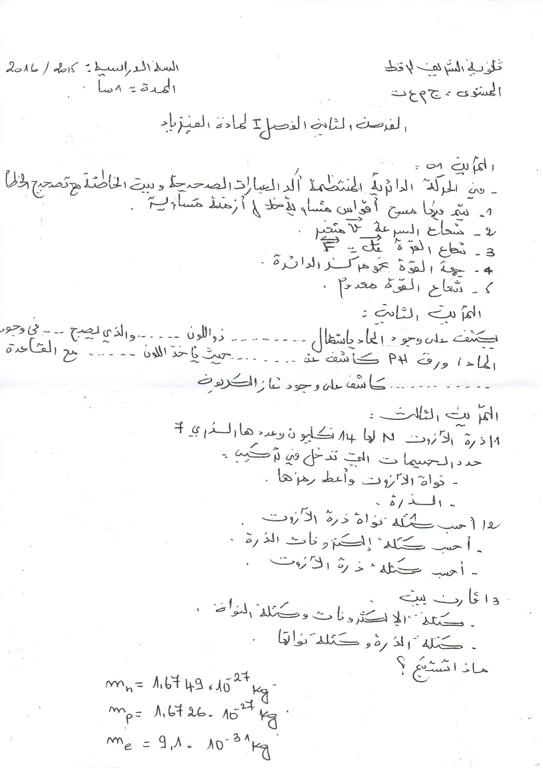 ثانوية الشريف لرقط السنة الدراسية: 2015/2016
المستوى: ج م ع ت المدة: 1 سا
الفرض الثاني الفصل I لمادة الفيزياء
التمرين 01:
- في الحركة الدائرية المنتظمة أكد العبارات الصحيحة وبين الخاطئة مع تصحيح الخطأ
1- يتم فيها مسح أقواس متساوية خلال أزمنة متساوية.
2- شعاع السرعة لا متغير.
3- شعاع القوة F
4- جهة القوة نحو مركز الدائرة.
5- شعاع القوة معدوم.
التمرين الثاني:
يكشف على وجود الماء باستعمال .......... ذو اللون ...... والذي يصبح .... في وجود
الماء، ورق PH كاشف عن ........ حيث يأخذ اللون ...... مع القاعدة
............ كاشف على وجود غاز الكربون
التمرين الثالث:
1/ ذرة الآزوت N لها 14 نكليون وعددها الذري 7
حدد الجسيمات التي تدخل في تركيب:
- نواة الآزوت وأعط رمزها.
- الذرة.
2/ أحسب كتلة نواة ذرة الآزوت.
- أحسب كتلة إلكترونات الذرة.
- أحسب كتلة ذرة الآزوت.
3/ قارن بين
- كتلة الإلكترونات وكتلة النواة.
- كتلة الذرة وكتلة نواتها.
ماذا تستنتج؟
mn = 1,6749.10⁻²⁷ kg
mp = 1,6726.10⁻²⁷ kg
me = 9,1.10⁻³¹ kg